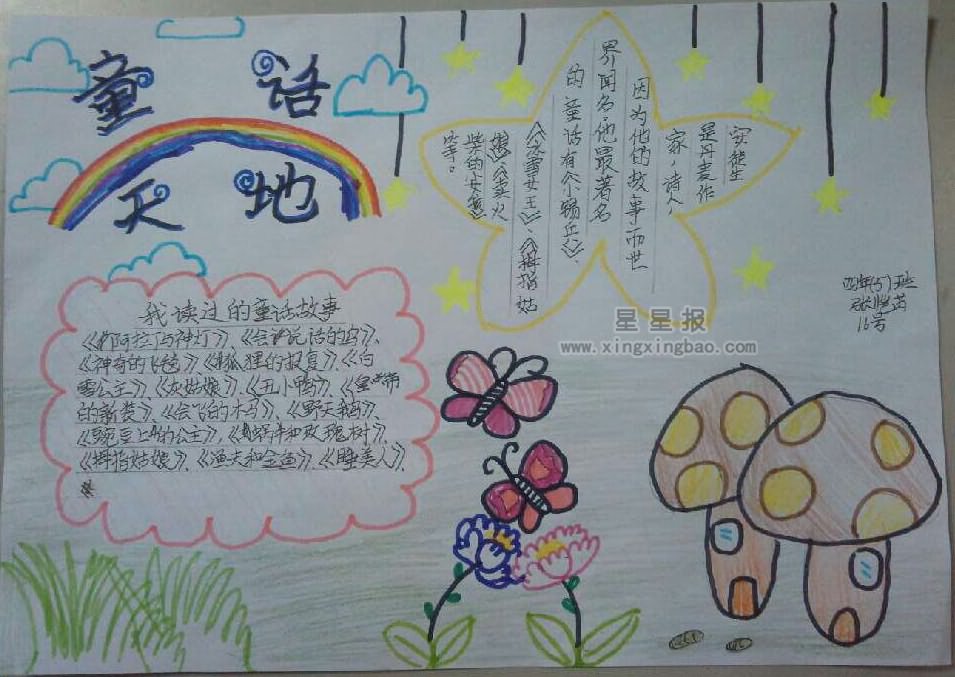 童话
天地
安徒生
是丹麦作
家,诗人,
因为他的故事而世
界闻名,他最著名
的童话有《小锡兵》、
《冰雪女王》、《拇指姑
娘》、《卖火
柴的小女孩》
等。
四年(5)班
张
16号
星星报
www.xingxingbao.com
我读过的童话故事
《阿拉丁与神灯》、《会说话的鸟》、
《神奇的飞毯》、《狐狸的报复》、《白
雪公主》、《灰姑娘》、《丑小鸭》、《皇帝
的新装》、《会飞的木马》、《野天鹅》、
《豌豆上的公主》、《蜗牛和玫瑰树》、
《拇指姑娘》、《渔夫和金鱼》、《睡美人》、